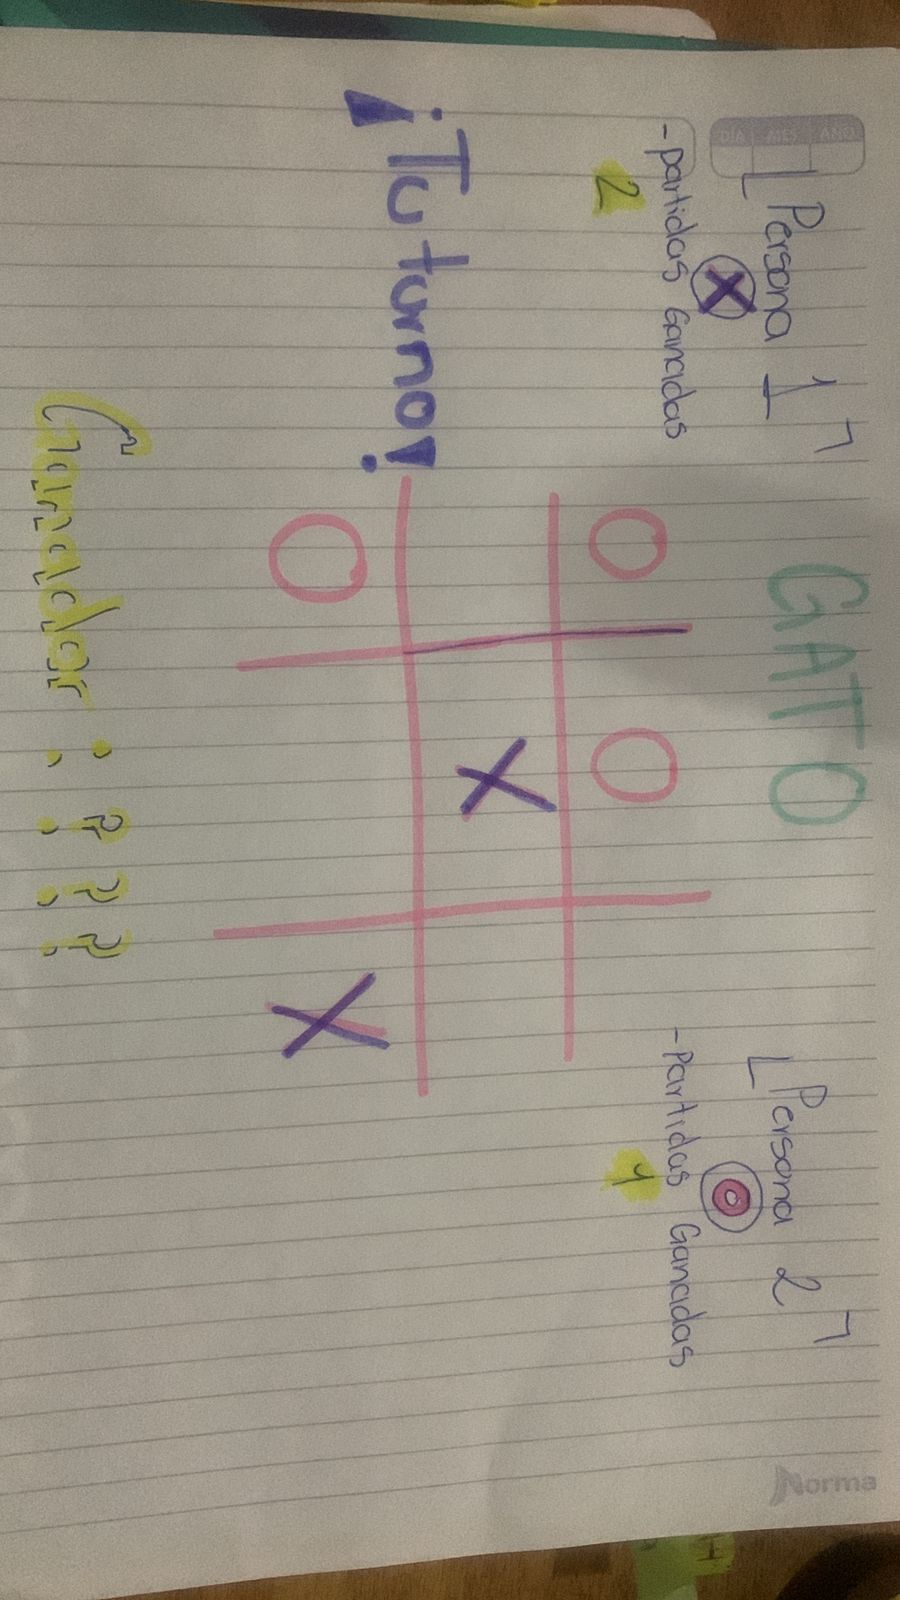 DÍA MES AÑO
GATO
Persona 1
X
-partidas Ganadas
2
Persona 2
O
-Partidas Ganadas
1
¡Tu turno!
O O
X
O X
Ganador: ???
Norma